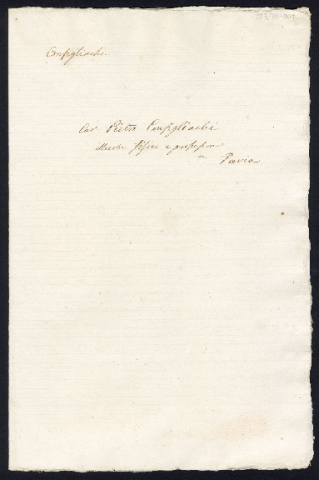 Configliachi.
Cav Pietro Configliachi
Fisico e professore
Pavia